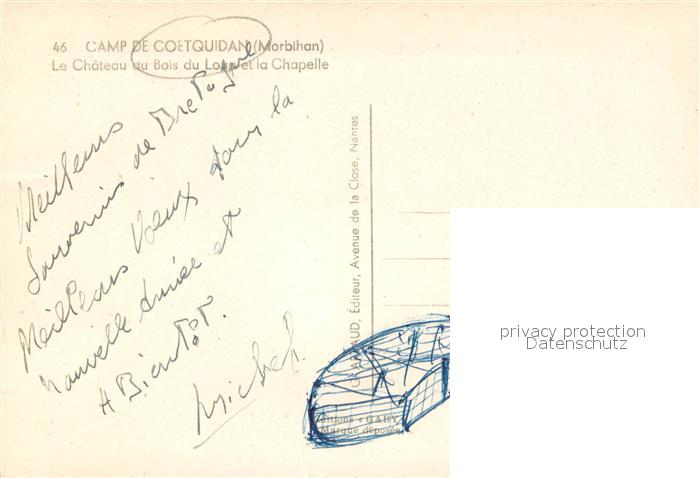 46 CAMP DE COETQUIDAN (Morbihan)
Le Château du Bois du Loup et la Chapelle
Meilleurs
Souvenirs de Bretagne
Meilleurs Vœux pour la
Nouvelle Année et
A Bientôt.
Michel.
Éditeur, Avenue de la Close, Nantes
Éditions "GABY"
Marque déposée
privacy protection
Datenschutz